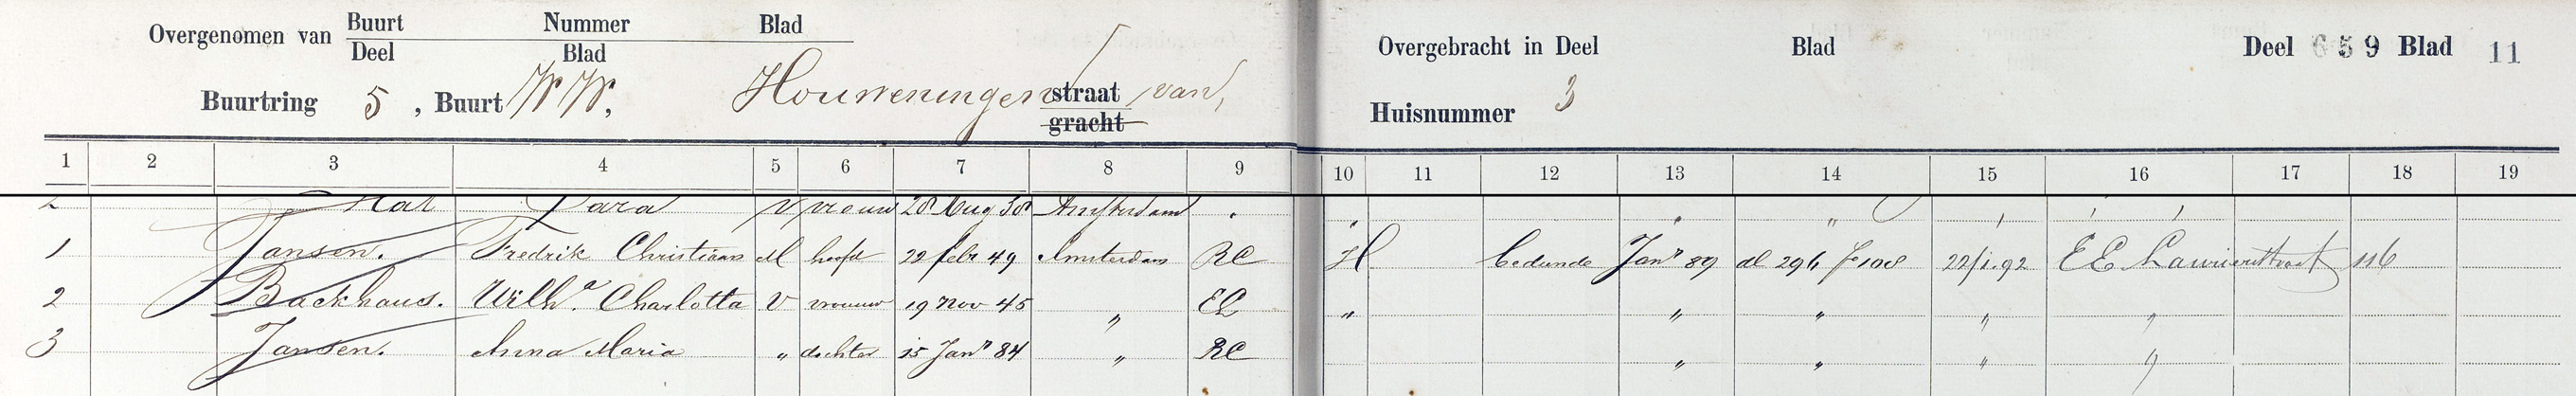 Overgenomen van Buurt Nummer Blad
Deel Blad
Buurtring 5, Buurt WW, Houweningen straat van,
gracht
Overgebracht in Deel Blad Deel 659 Blad 11
Huisnummer 3
1 2 3 4 5 6 7 8 9 10 11 12 13 14 15 16 17 18 19
2 V vrouw 28 Aug 38 Amsterdam
1 Jansen. Fredrik Christiaan M hoofd 22 febr 49 Amsterdam RC H bediende Janr 89 dl 296 fo 108 22/1.92 EE Laurierstraat 116
2 Backhaus. Wilha. Charlotta V vrouw 19 Nov 45 " EL " " " " "
3 Jansen. Anna Maria " dochter 15 Janr 84 " RC " " " "